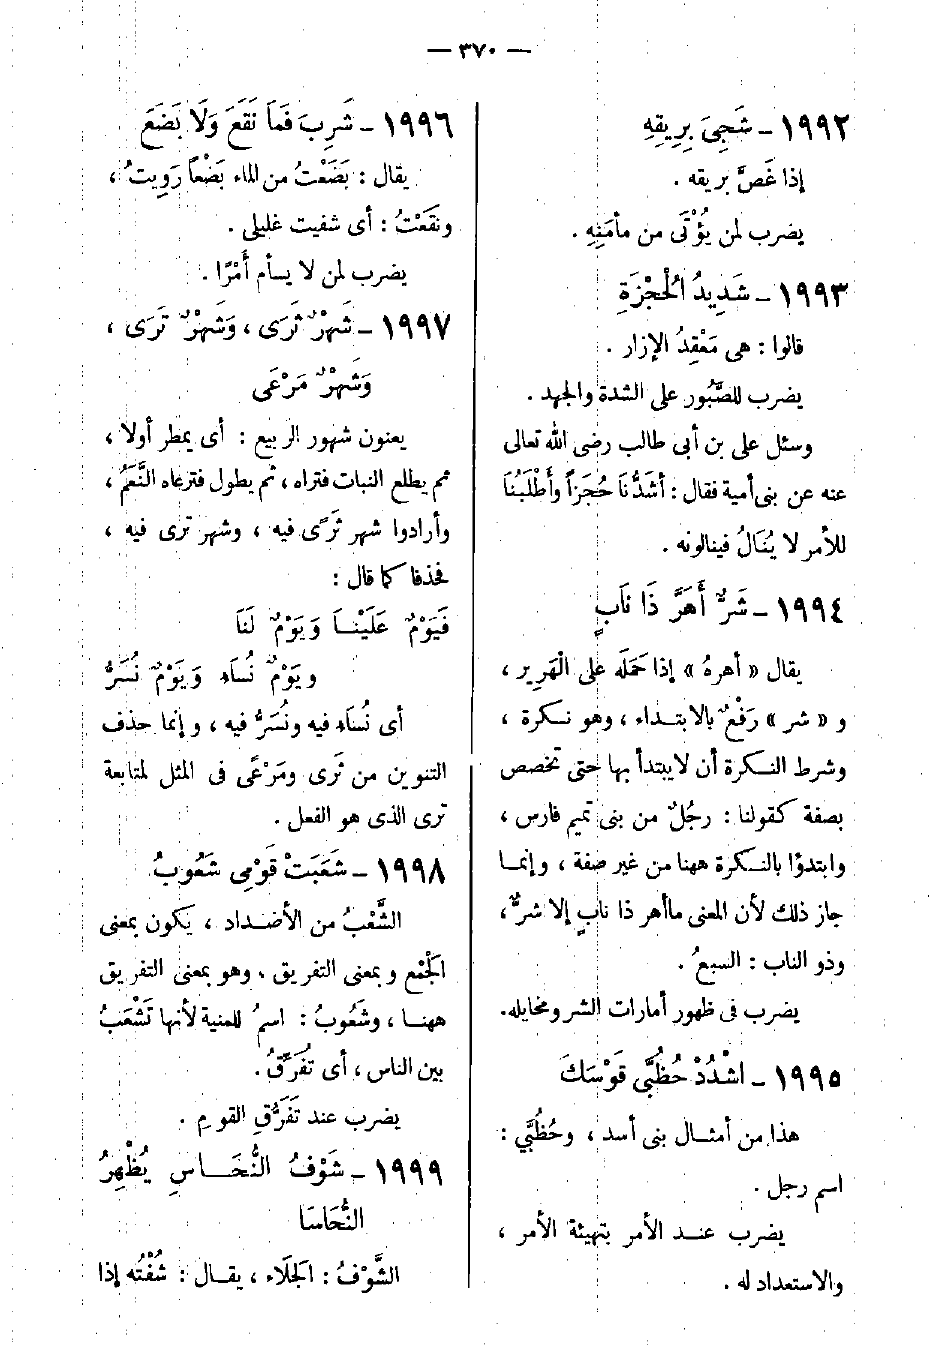 — ٣٧٠ —
١٩٩٢ - شَجِىَ بِرِيقِهِ
إذا غَصَّ بريقه .
يضرب لمن يُؤْتَى من مأمَنِهِ .
١٩٩٣ - شَدِيدُ الْحُجْزَةِ
قالوا : هى مَعْقِدُ الإزار .
يضرب للصَّبُور على الشدة والجهد .
وسئل على بن أبى طالب رضى الله تعالى
عنه عن بنى أمية فقال : أشَدُّنَا حُجَزاً وأَطْلَبُنَا
للأمر لا يُنَالُ فينالونه .
١٩٩٤ - شَرٌّ أَهَرَّ ذَا نَابٍ
يقال « أهرهُ » إذا حَمَلَه على الْهَرِير ،
و « شر » رَفْعٌ بالابتداء ، وهو نكرة ،
وشرط النكرة أن لا يبتدأ بها حتى تخصص
بصفة كقولنا : رجُلٌ من بنى تميم فارس ،
وابتدؤا بالنكرة ههنا من غير صفة ، وإنما
جاز ذلك لأن المعنى ما أهر ذا نابٍ إلا شرٌّ ،
وذو الناب : السبعُ .
يضرب فى ظهور أمارات الشر ومخايله.
١٩٩٥ - اشْدُدْ حُظُبَّى قَوْسَكَ
هذا من أمثال بنى أسد ، وحُظُبَّي :
اسم رجل .
يضرب عند الأمر بتهيئة الأمر ،
والاستعداد له .
١٩٩٦ - شَرِبَ فَمَا نَقَعَ وَلَا بَضَعَ
يقال : بَضَعْتُ من الماء بَضْعاً رَوِيتُ ،
ونَقَعْتُ : أى شفيت غليلى .
يضرب لمن لا يسأم أَمْرًا .
١٩٩٧ - شَهْرٌ ثَرَى ، وَشَهْرٌ تَرَى ،
وَشَهْرٌ مَرْعَى
يعنون شهور الربيع : أى يمطر أولا ،
ثم يطلع النبات فتراه ، ثم يطول فترعاه النَّعَمُ ،
وأرادوا شهر ثَرًى فيه ، وشهر ترى فيه ،
فحذفا كما قال :
فَيَوْمٌ عَلَيْنَا وَيَوْمٌ لَنَا
ويَوْمٌ نُسَاءِ وَيَوْمٌ نُسَرُّ
أى نُسَاءِ فيه ونُسَرُّ فيه ، وإنما حذف
التنوين من ثَرى ومَرْعًى فى المثل لمتابعة
ترى الذى هو الفعل .
١٩٩٨ - شَعَبَتْ قَوْمِى شَعُوبُ
الشَّعْبُ من الأضداد ، يكون بمعنى
الْجَمْع وبمعنى التفريق ، وهو بمعنى التفريق
ههنا ، وشَعُوبُ : اسمُ للمنية لأنها تَشْعَبُ
بين الناس ، أى تُفَرِّقُ .
يضرب عند تَفَرُّقِ القومِ .
١٩٩٩ - شَوْفُ النُّحَاسِ يُظْهِرُ
النُّحَاسَا
الشَّوْفُ : الجَلَاء ، يقال : شُفْتُه إذا